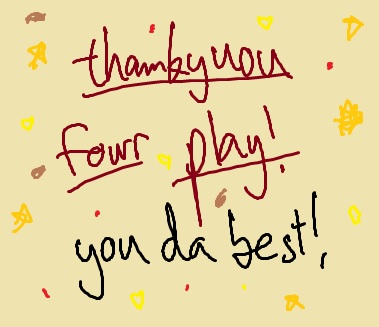 thankyou
fowr play!
you da best!